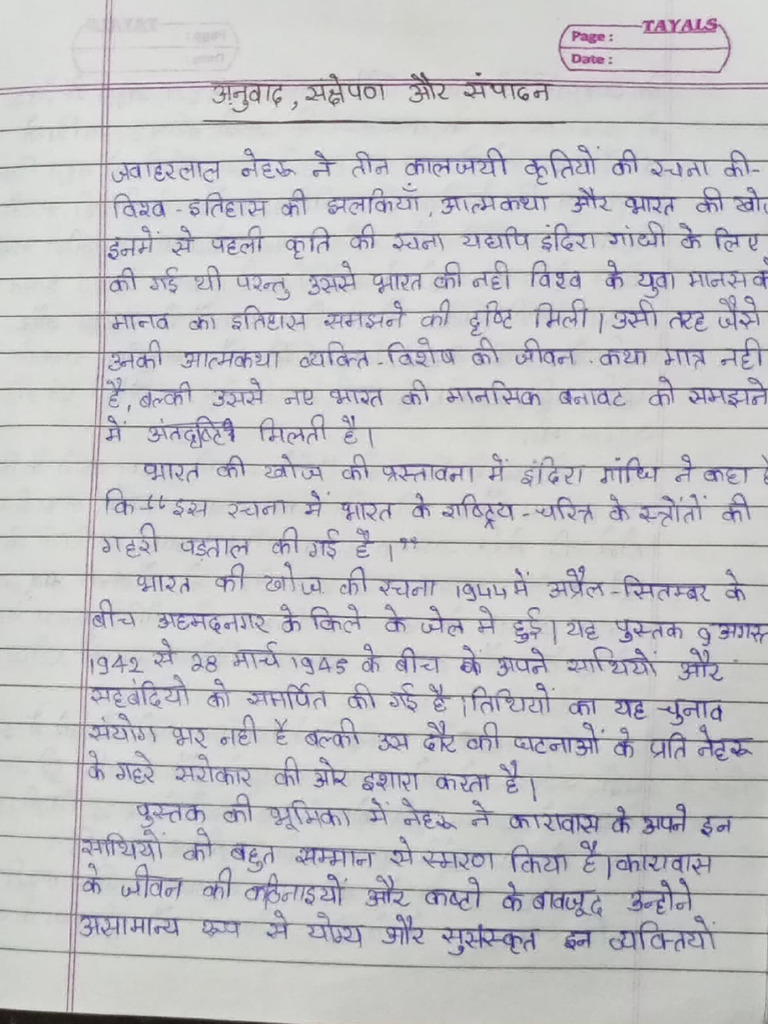 TAYALS
Page :
Date :
अनुवाद, संक्षेपण और संपादन
जवाहरलाल नेहरू ने तीन कालजयी कृतियों की रचना की-
विश्व-इतिहास की झलकियाँ, आत्मकथा और भारत की खो
इनमें से पहली कृति की रचना यद्यपि इंदिरा गांधी के लिए
की गई थी परन्तु उससे भारत की नही विश्व के युवा मानस
मानव का इतिहास समझने की दृष्टि मिली। उसी तरह जैसे
उनकी आत्मकथा व्यक्ति-विशेष की जीवन-कथा मात्र नही
है, बल्की उससे नए भारत की मानसिक बनावट को समझने
में अंतदृष्टि मिलती है।
भारत की खोज की प्रस्तावना में इंदिरा गांधि ने कहा है
कि-"इस रचना में भारत के राष्ट्रिय-चरित्र के स्त्रोंतों की
गहरी पड़ताल की गई है।"
भारत की खोज की रचना 1944 में अप्रैल-सितम्बर के
बीच अहमदनगर के किले के जेल मे हुई। यह पुस्तक 9 अगस्त
1942 से 28 मार्च 1945 के बीच के अपने साथियों और
सहबंदियो को समर्पित की गई है। तिथियों का यह चुनाव
संयोग भर नही है बल्की उस दौर की घटनाओं के प्रति नेहरू
के गहरे सरोकार की ओर इशारा करता है।
पुस्तक की भूमिका में नेहरू ने कारावास के अपने इन
साथियों को बहुत सम्मान से स्मरण किया है। कारावास
के जीवन की कठिनाइयों और कष्टो के बावजूद उन्होने
असामान्य रूप से योग्य और सुसंस्कृत इन व्यक्तियों